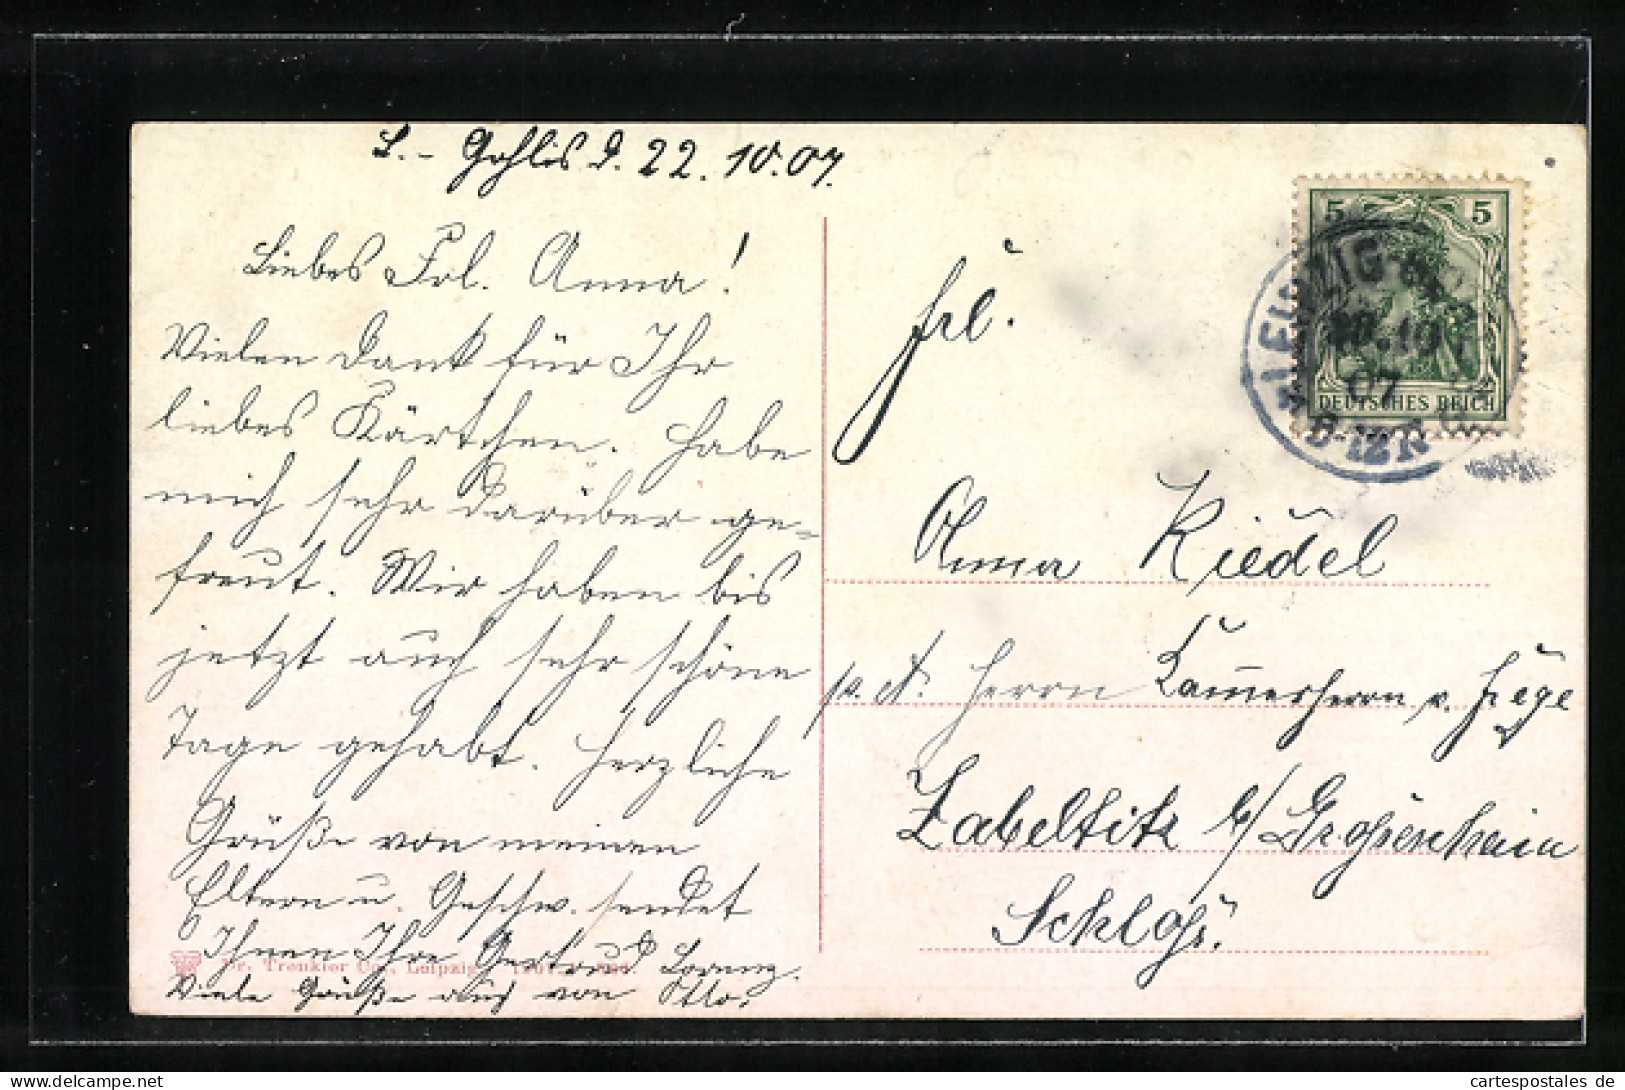 L.- Gohlis d. 22. 10. 07.
Liebes Frl. Anna!
Vielen Dank für Ihr
liebes Kärtchen. Habe
mich sehr darüber ge-
freut. Wir haben bis
jetzt auch sehr schöne
Tage gehabt. Herzliche
Grüße von meinen
Eltern u. Geschw. sendet
Ihnen Ihre Gertrud Lorenz.
Viele Grüße auch von Otto.
Dr. Trenkler Co., Leipzig. 1907.
5 5
DEUTSCHES REICH
LEIPZIG-GOHLIS
10
07
Frl.
Anna Riedel
p. A. Herrn Kammerherrn v.
Zabeltitz b/ Grossenhain
Schloss.
cartespostales de